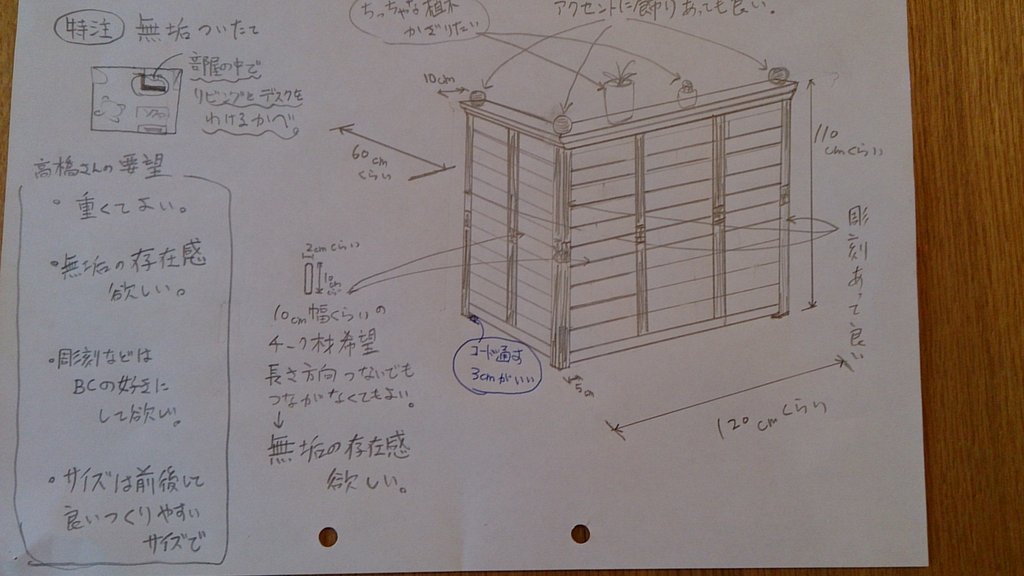 特注 無垢ついたて
部屋の中で
リビングとデスクを
わけるかべ。
高橋さんの要望
・重くてよい。
・無垢の存在感
欲しい。
・彫刻などは
BCの好きに
して欲しい。
・サイズは前後して
良いつくりやすい
サイズで
ちっちゃな植木
かざりたい
アクセントに飾りあっても良い。
10cm
60cm
くらい
110
cmくらい
彫刻あって良い
2cmくらい
10cm
10cm幅くらいの
チーク材希望
長さ方向つないでも
つながなくてもよい。
↓
無垢の存在感
欲しい。
コード通す
3cmがいい
5cm
120cmくらい